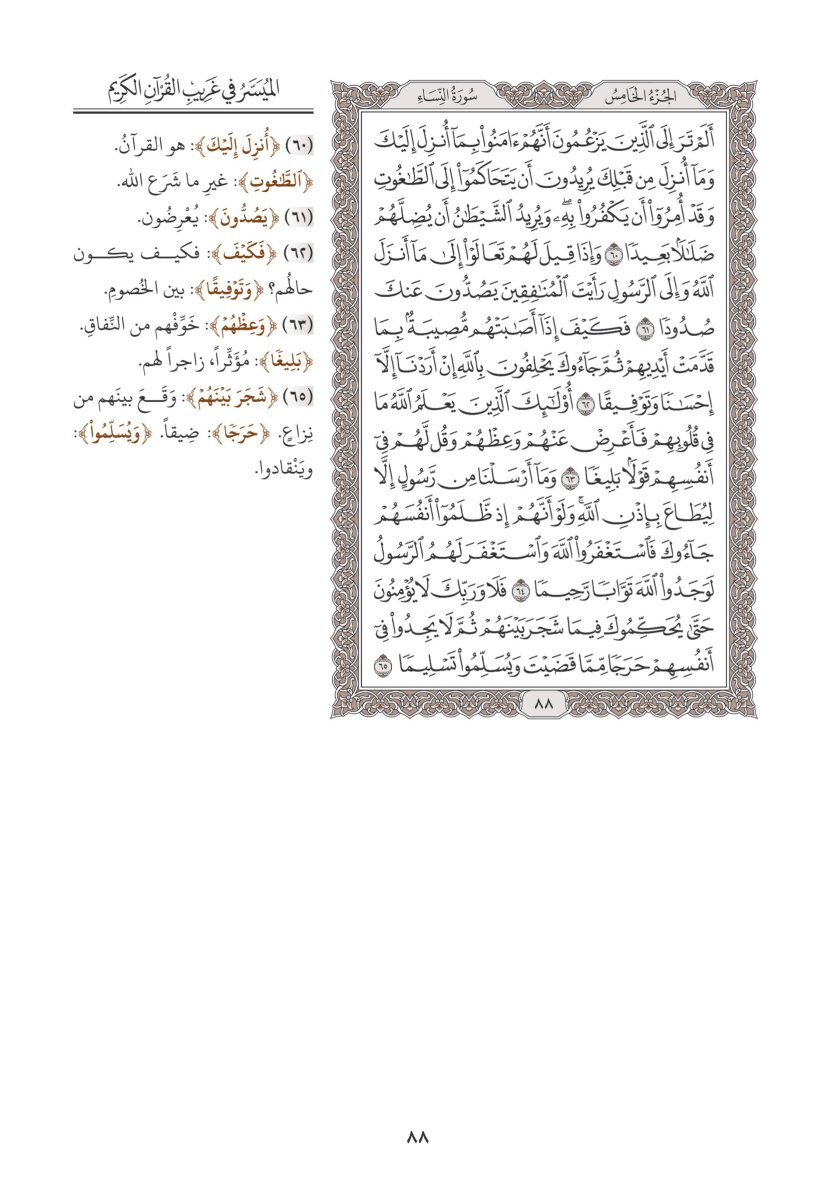 الجُزْءُ الخَامِسُ
سُورَةُ النِّسَاءِ
أَلَمْ تَرَ إِلَى ٱلَّذِينَ يَزْعُمُونَ أَنَّهُمْ ءَامَنُوا۟ بِمَآ أُنزِلَ إِلَيْكَ
وَمَآ أُنزِلَ مِن قَبْلِكَ يُرِيدُونَ أَن يَتَحَاكَمُوٓا۟ إِلَى ٱلطَّٰغُوتِ
وَقَدْ أُمِرُوٓا۟ أَن يَكْفُرُوا۟ بِهِۦۖ وَيُرِيدُ ٱلشَّيْطَٰنُ أَن يُضِلَّهُمْ
ضَلَٰلًۢا بَعِيدًا ٦٠ وَإِذَا قِيلَ لَهُمْ تَعَالَوْا۟ إِلَىٰ مَآ أَنزَلَ
ٱللَّهُ وَإِلَى ٱلرَّسُولِ رَأَيْتَ ٱلْمُنَٰفِقِينَ يَصُدُّونَ عَنكَ
صُدُودًا ٦١ فَكَيْفَ إِذَآ أَصَٰبَتْهُم مُّصِيبَةٌۢ بِمَا
قَدَّمَتْ أَيْدِيهِمْ ثُمَّ جَآءُوكَ يَحْلِفُونَ بِٱللَّهِ إِنْ أَرَدْنَآ إِلَّآ
إِحْسَٰنًا وَتَوْفِيقًا ٦٢ أُو۟لَٰٓئِكَ ٱلَّذِينَ يَعْلَمُ ٱللَّهُ مَا
فِى قُلُوبِهِمْ فَأَعْرِضْ عَنْهُمْ وَعِظْهُمْ وَقُل لَّهُمْ فِىٓ
أَنفُسِهِمْ قَوْلًۢا بَلِيغًا ٦٣ وَمَآ أَرْسَلْنَا مِن رَّسُولٍ إِلَّا
لِيُطَاعَ بِإِذْنِ ٱللَّهِۚ وَلَوْ أَنَّهُمْ إِذ ظَّلَمُوٓا۟ أَنفُسَهُمْ
جَآءُوكَ فَٱسْتَغْفَرُوا۟ ٱللَّهَ وَٱسْتَغْفَرَ لَهُمُ ٱلرَّسُولُ
لَوَجَدُوا۟ ٱللَّهَ تَوَّابًا رَّحِيمًا ٦٤ فَلَا وَرَبِّكَ لَا يُؤْمِنُونَ
حَتَّىٰ يُحَكِّمُوكَ فِيمَا شَجَرَ بَيْنَهُمْ ثُمَّ لَا يَجِدُوا۟ فِىٓ
أَنفُسِهِمْ حَرَجًا مِّمَّا قَضَيْتَ وَيُسَلِّمُوا۟ تَسْلِيمًا ٦٥
٨٨
المُيَسَّرُ فِي غَرِيبِ القُرْآنِ الكَرِيمِ
(٦٠) ﴿أُنزِلَ إِلَيْكَ﴾: هو القرآنُ.
﴿ٱلطَّٰغُوتِ﴾: غيرِ ما شَرَع الله.
(٦١) ﴿يَصُدُّونَ﴾: يُعْرِضُون.
(٦٢) ﴿فَكَيْفَ﴾: فكيف يكون
حالُهم؟ ﴿وَتَوْفِيقًا﴾: بين الخُصومِ.
(٦٣) ﴿وَعِظْهُمْ﴾: خَوِّفْهم من النِّفاقِ.
﴿بَلِيغًا﴾: مُؤَثِّراً، زاجراً لهم.
(٦٥) ﴿شَجَرَ بَيْنَهُمْ﴾: وَقَعَ بينَهم من
نِزاعٍ. ﴿حَرَجًا﴾: ضِيقاً. ﴿وَيُسَلِّمُوا۟﴾:
ويَنْقادوا.
٨٨